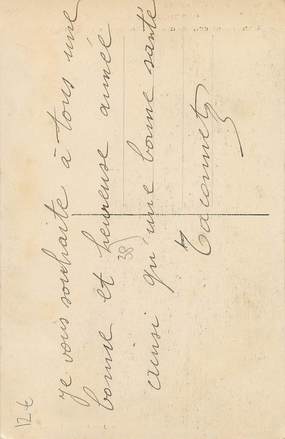 je vous souhaite à tous une
bonne et heureuse année
ainsi qu'une bonne santé
38
12 €